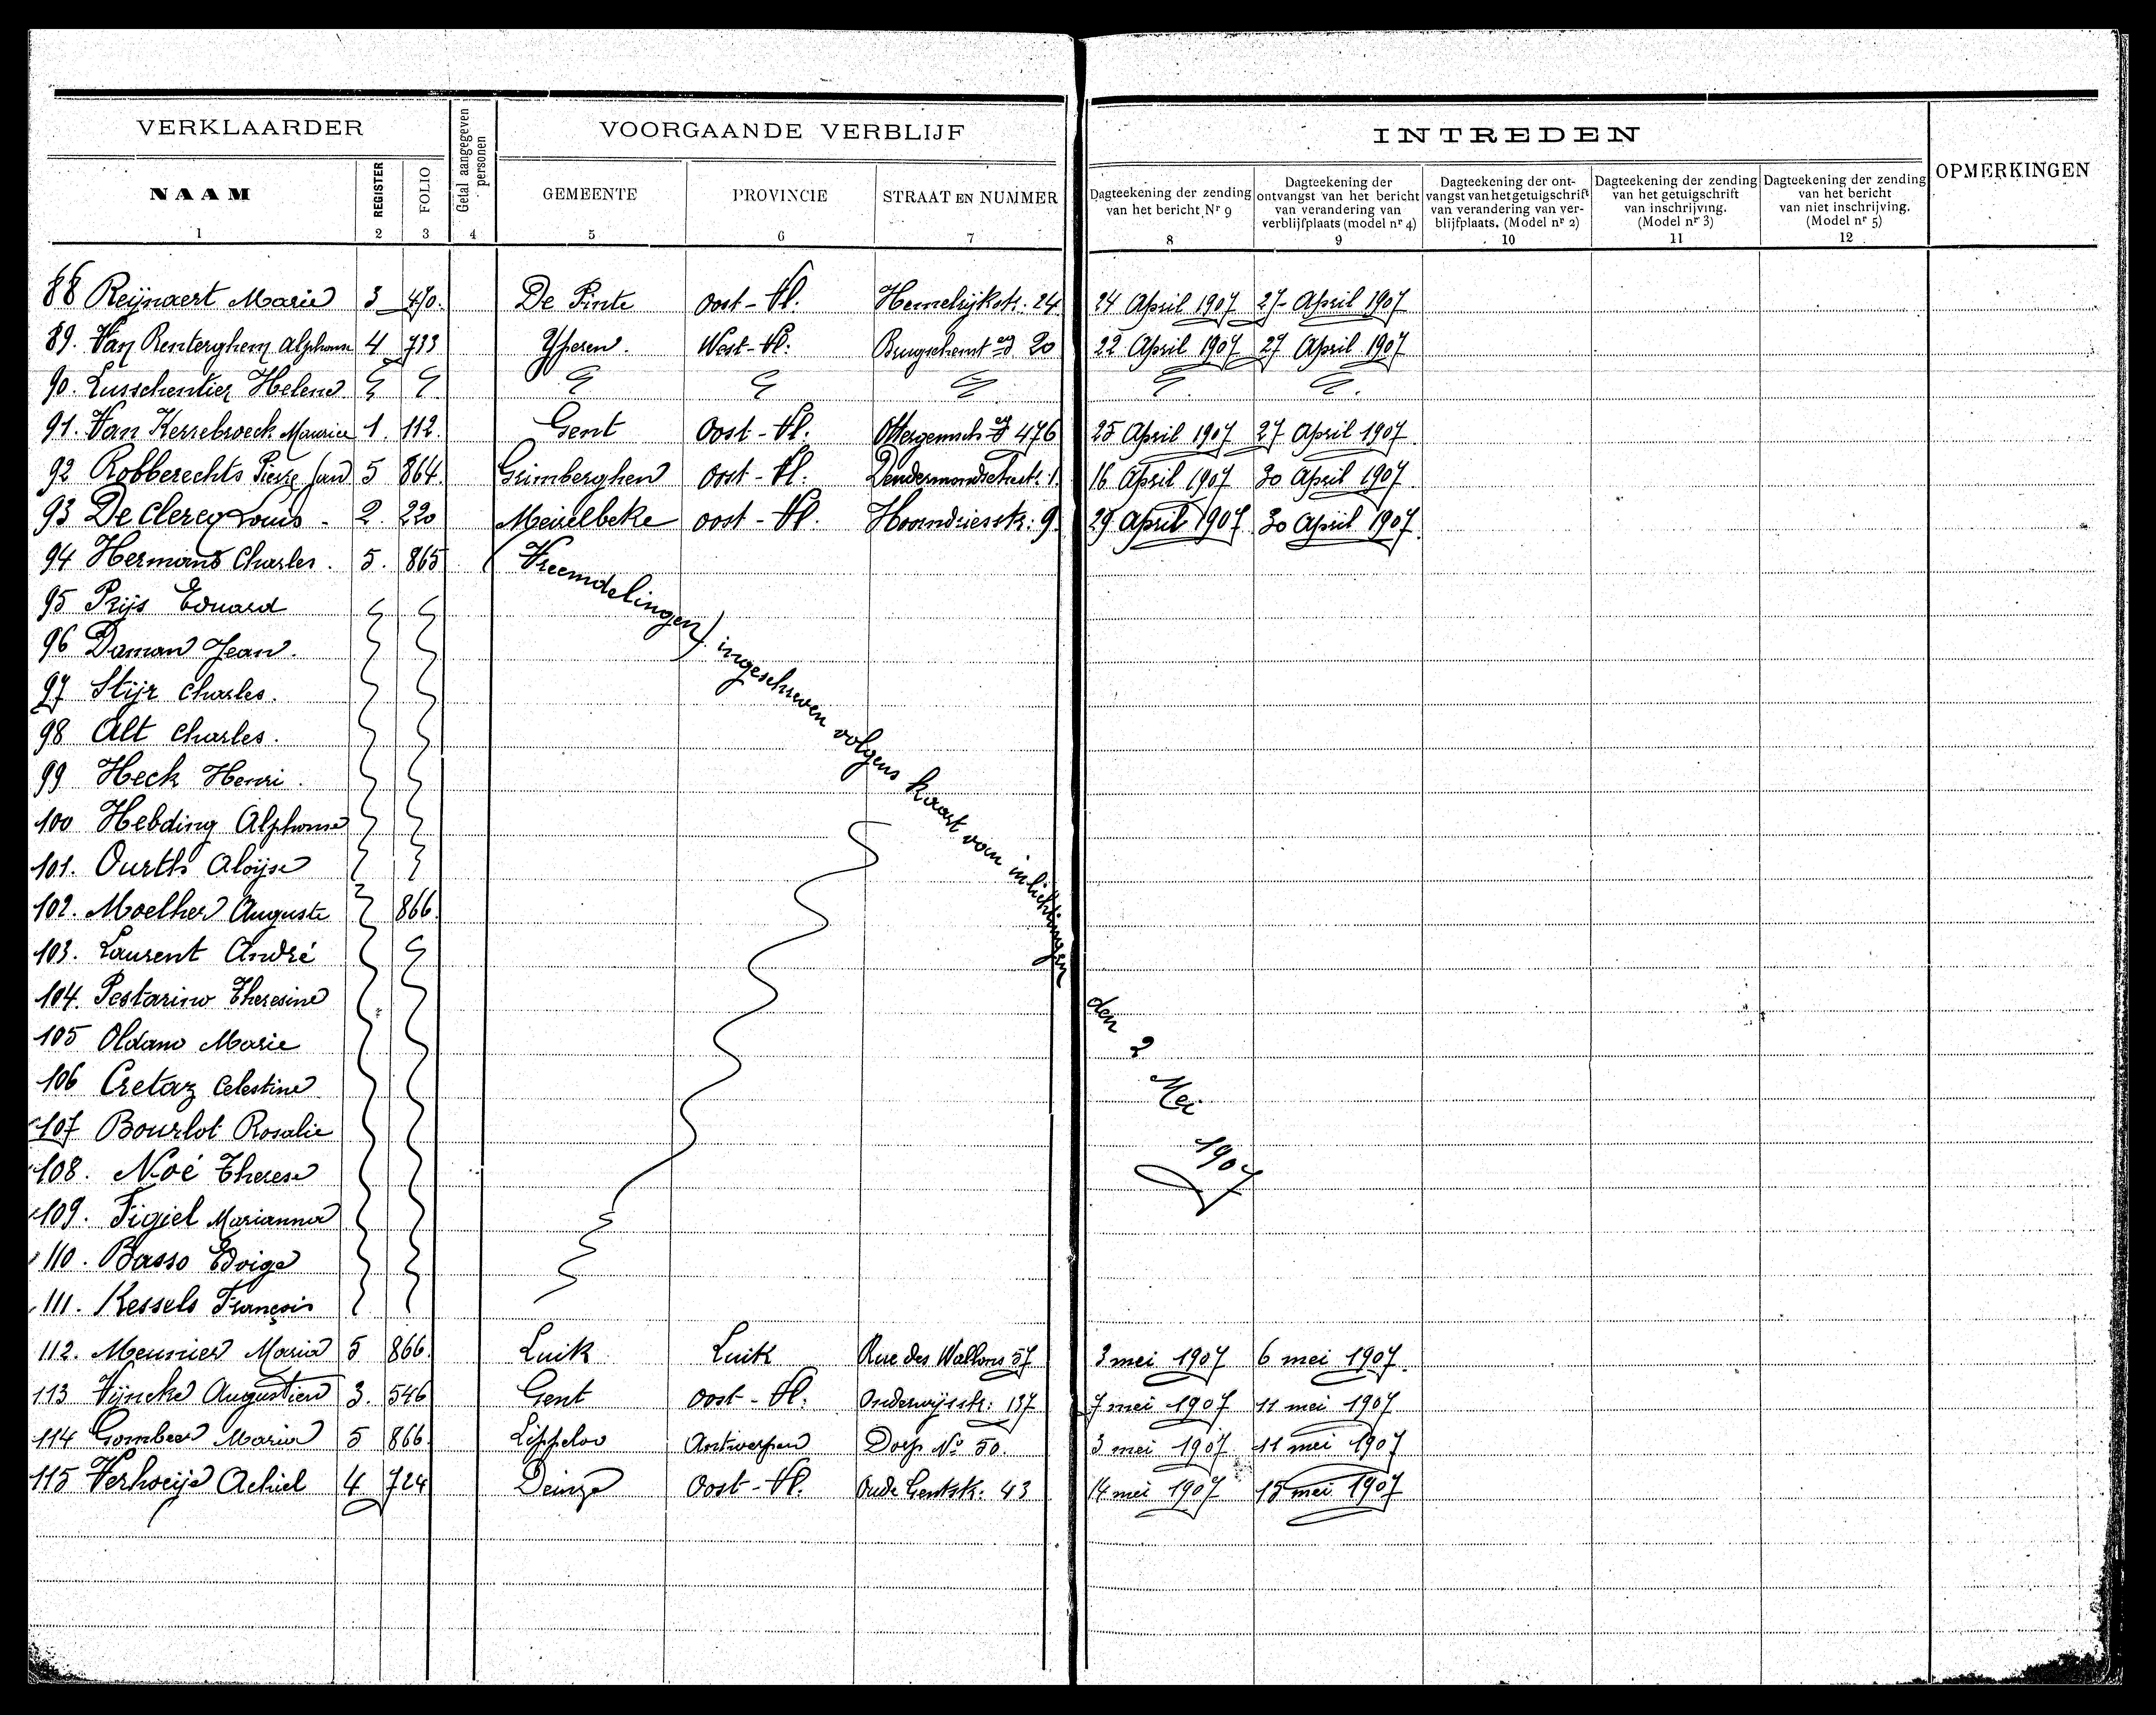 VERKLAARDER
Getal aangegeven personen
VOORGAANDE VERBLIJF
INTREDEN
OPMERKINGEN
NAAM REGISTER FOLIO GEMEENTE PROVINCIE STRAAT EN NUMMER
Dagteekening der zending van het bericht Nr 9
Dagteekening der ontvangst van het bericht van verandering van verblijfplaats (model nr 4)
Dagteekening der ontvangst van het getuigschrift van verandering van verblijfplaats. (Model nr 2)
Dagteekening der zending van het getuigschrift van inschrijving. (Model nr 3)
Dagteekening der zending van het bericht van niet inschrijving. (Model nr 5)
1 2 3 4 5 6 7 8 9 10 11 12
88 Reijnaert Marie 3 470. De Pinte Oost-Vl. Hemelrijkstr. 24 24 April 1907 27 April 1907
89. Van Renterghem Alphonse 4 733 Yperen. West-Vl. 20 22 April 1907 27 April 1907
90. Helene
91. Van Kerrebroeck Maurice 1. 112. Gent Oost-Vl. 476 25 April 1907 27 April 1907
92 Robberechts Pierre Jean 5 864. Grimberghen Oost-Vl. 1. 16 April 1907 30 April 1907
93 De Clercq Louis - 2. 220 Meirelbeke Oost-Vl. Hoorndriesstr: 9. 29 April 1907. 30 April 1907.
94 Hermans Charles. 5. 865 (Vreemdelingen) ingeschreven volgens kaart van inlichtingen den 2 Mei 1907
95 Prijs Eduard
96 Daman Jean.
97 Stijr Charles.
98 Alt Charles.
99 Heck Henri.
100 Hebding Alphonse
101. Ourth Aloijse
102. Moelher Auguste 866.
103. Laurent André
104. Pestarino Theresine
105 Oldano Marie
106 Cretaz Celestine
107 Bourlot Rosalie
108. Noé Therese
109. Figiel Marianna
110. Basso Edvige
111. Kessels François
112. Meunier Maria 5 866. Luik Luik Rue des Wallons 57 3 mei 1907 6 mei 1907.
113 Vijncke Augustien 3. 546 Gent Oost-Vl. Onderwijsstr: 137 7 mei 1907 11 mei 1907
114 Gombeer Maria 5 866 Lippeloo Antwerpen Dorp No 50. 3 mei 1907. 11 mei 1907
115 Verhoeije Achiel 4 724 Deinze Oost-Vl. Oude Gentstr: 43 14 mei 1907 15 mei 1907